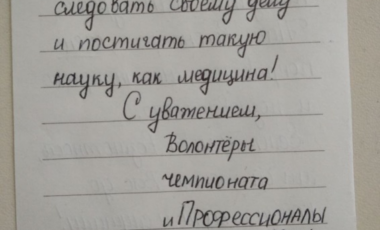 следовать своему делу
и постигать такую
науку, как медицина!
С уважением,
Волонтёры
чемпионата
и Профессионалы